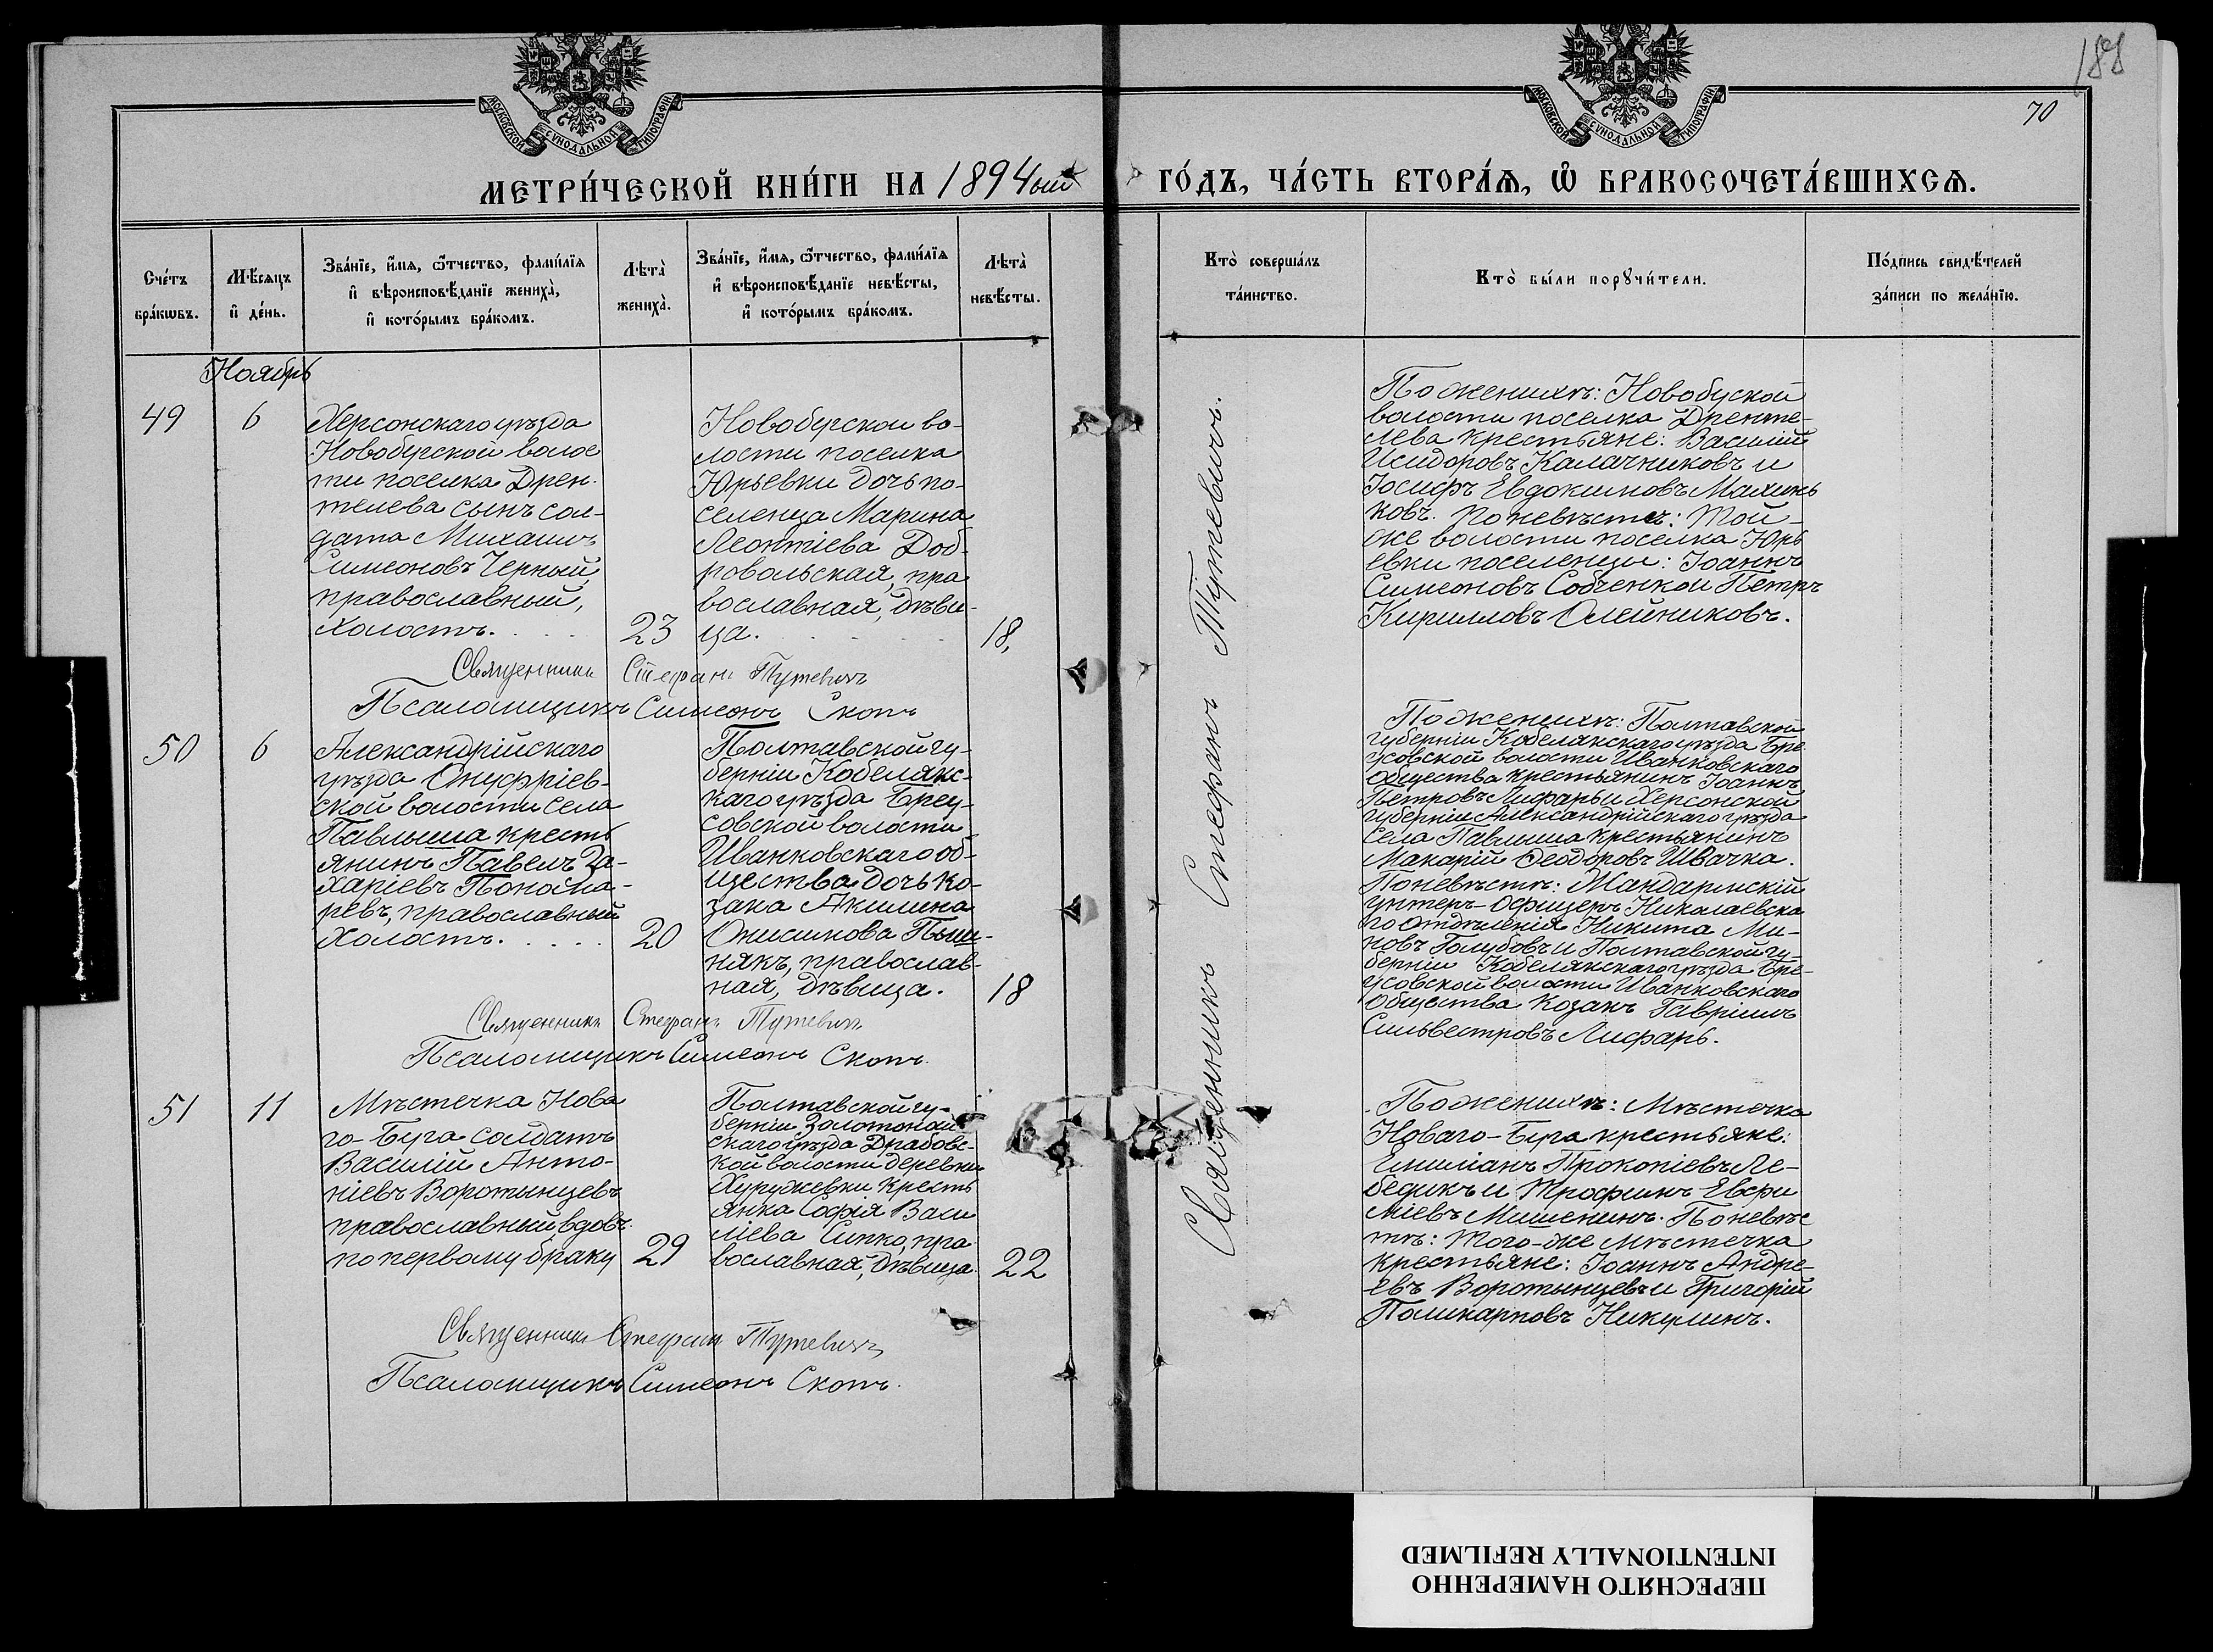 188
70
МОСКОВСКОЙ СѴНОДАЛЬНОЙ ТИПОГРАФІИ
МОСКОВСКОЙ СѴНОДАЛЬНОЙ ТИПОГРАФІИ
МЕТРИ́ЧЕСКОЙ КНИ́ГИ НА 1894ый ГО́ДЪ, ЧА́СТЬ ВТОРА́Ѧ, Ѽ БРАКОСОЧЕТА́ВШИХСѦ.
Сче́тъ бра́кѡвъ.
М҄ѣсѧцъ и҆ де́нь.
Зва́нїе, и҆́мѧ, ѻ҆́тчество, фами́лїѧ
и҆ вѣроисповѣ́данїе жениха̀,
и҆ кото́рымъ бра́комъ.
Лѣта̀
жениха̀.
Зва́нїе, и҆́мѧ, ѻ҆́тчество, фами́лїѧ
и҆ вѣроисповѣ́данїе невѣ́сты,
и҆ кото́рымъ бра́комъ.
Лѣта̀
невѣ́сты.
Кто̀ соверша́лъ
та́инство.
Кто̀ бы́ли порꙋчи́тели.
По́дпись свидѣ́телей
за́писи по жела́нїю.
Ноябрь
49
6
Херсонскаго уѣзда
Новобугской волос
ти поселка Дрен-
телева сынъ сол-
дата Михаилъ
Симеоновъ Черный,
православный,
холостъ.
23
Новобугской во-
лости поселка
Юрьевки дочь по-
селенца Марина
Леонтіева Доб-
ровольская, пра
вославная, дѣви-
ца.
18,
Священникъ Стефанъ Тутевичъ
Псаломщикъ Симеонъ Скопъ
Священникъ Стефанъ Тутевичъ.
По женихѣ: Новобугской
волости поселка Дренте-
лева крестьяне: Василій
Исидоровъ Калачниковъ и
Іосифъ Евдокимовъ Малинь
ковъ. По невѣстѣ: той-
же волости поселка Юрь
евки поселенцы: Іоаннъ
Симеоновъ Собченко и Петръ
Кирилловъ Олейниковъ.
50
6
Александрійскаго
уѣзда Онуфріев-
ской волости села
Павлыша кресть
янинъ Павелъ За-
харіевъ Понома-
ревъ, православный
холостъ.
20
Полтавской гу-
берніи Кобелякс-
каго уѣзда Бреу-
совской волости
Иванковскаго об-
щества дочь ко-
зака Акилина
Онисимова Пыш-
някъ, православ-
ная, дѣвица.
18
Священникъ Стефанъ Тутевичъ
Псаломщикъ Симеонъ Скопъ.
По женихѣ: Полтавской
губерніи Кобелякскаго уѣзда Бре
усовской волости Иванковскаго
общества крестьянинъ Іоаннъ
Петровъ Лифарь и Херсонской
губерніи Александрійскаго уѣзда
села Павлыша крестьянинъ
Макарій Ѳеодоровъ Швачка.
По невѣстѣ: Жандармскій
унтеръ-офицеръ Николаевска
го отдѣленія Никита Ми-
новъ Голубовъ и Полтавской гу-
берніи Кобелякскаго уѣзда Бре-
усовской волости Иванковскаго
общества козакъ Гавриилъ
Сильвестровъ Лифарь.
51
11
Мѣстечка Нова
го-Буга солдатъ
Василій Анто-
ніевъ Воротынцевъ
православный вдовъ
по первому браку
29
Полтавской гу-
берніи Золотонош
скаго уѣзда Драбовс-
кой волости деревни
Хуружевки кресть
янка Софія Васи
ліева Сипко, пра
вославная, дѣвица.
22
Священникъ Стефанъ Тутевичъ
Псаломщикъ Симеонъ Скопъ.
По женихѣ: Мѣстечка
Новаго-Буга крестьяне:
Емиліанъ Прокопіевъ Ле-
бедикъ и Трофимъ Евфи
міевъ Мишенинъ. По невѣс
тѣ: того-же мѣстечка
крестьяне: Іоаннъ Андре-
евъ Воротынцевъ и Григорій
Поликарповъ Никулинъ.
ПЕРЕСНЯТО НАМЕРЕННО
INTENTIONALLY REFILMED